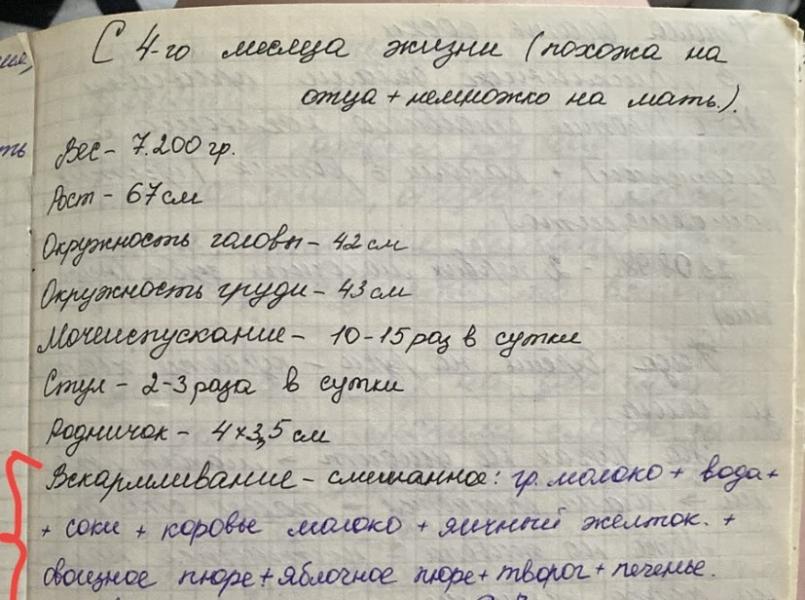 С 4-го месяца жизни (похожа на
отца + немножко на мать.).
ть
Вес - 7.200 гр.
Рост - 67 см
Окружность головы - 42 см
Окружность груди - 43 см
Мочеиспускание - 10-15 раз в сутки
Стул - 2-3 раза в сутки
Родничок - 4×3,5 см
Вскармливание - смешанное: гр. молоко + вода +
+ соки + коровье молоко + яичный желток. +
овощное пюре + яблочное пюре + творог + печенье.